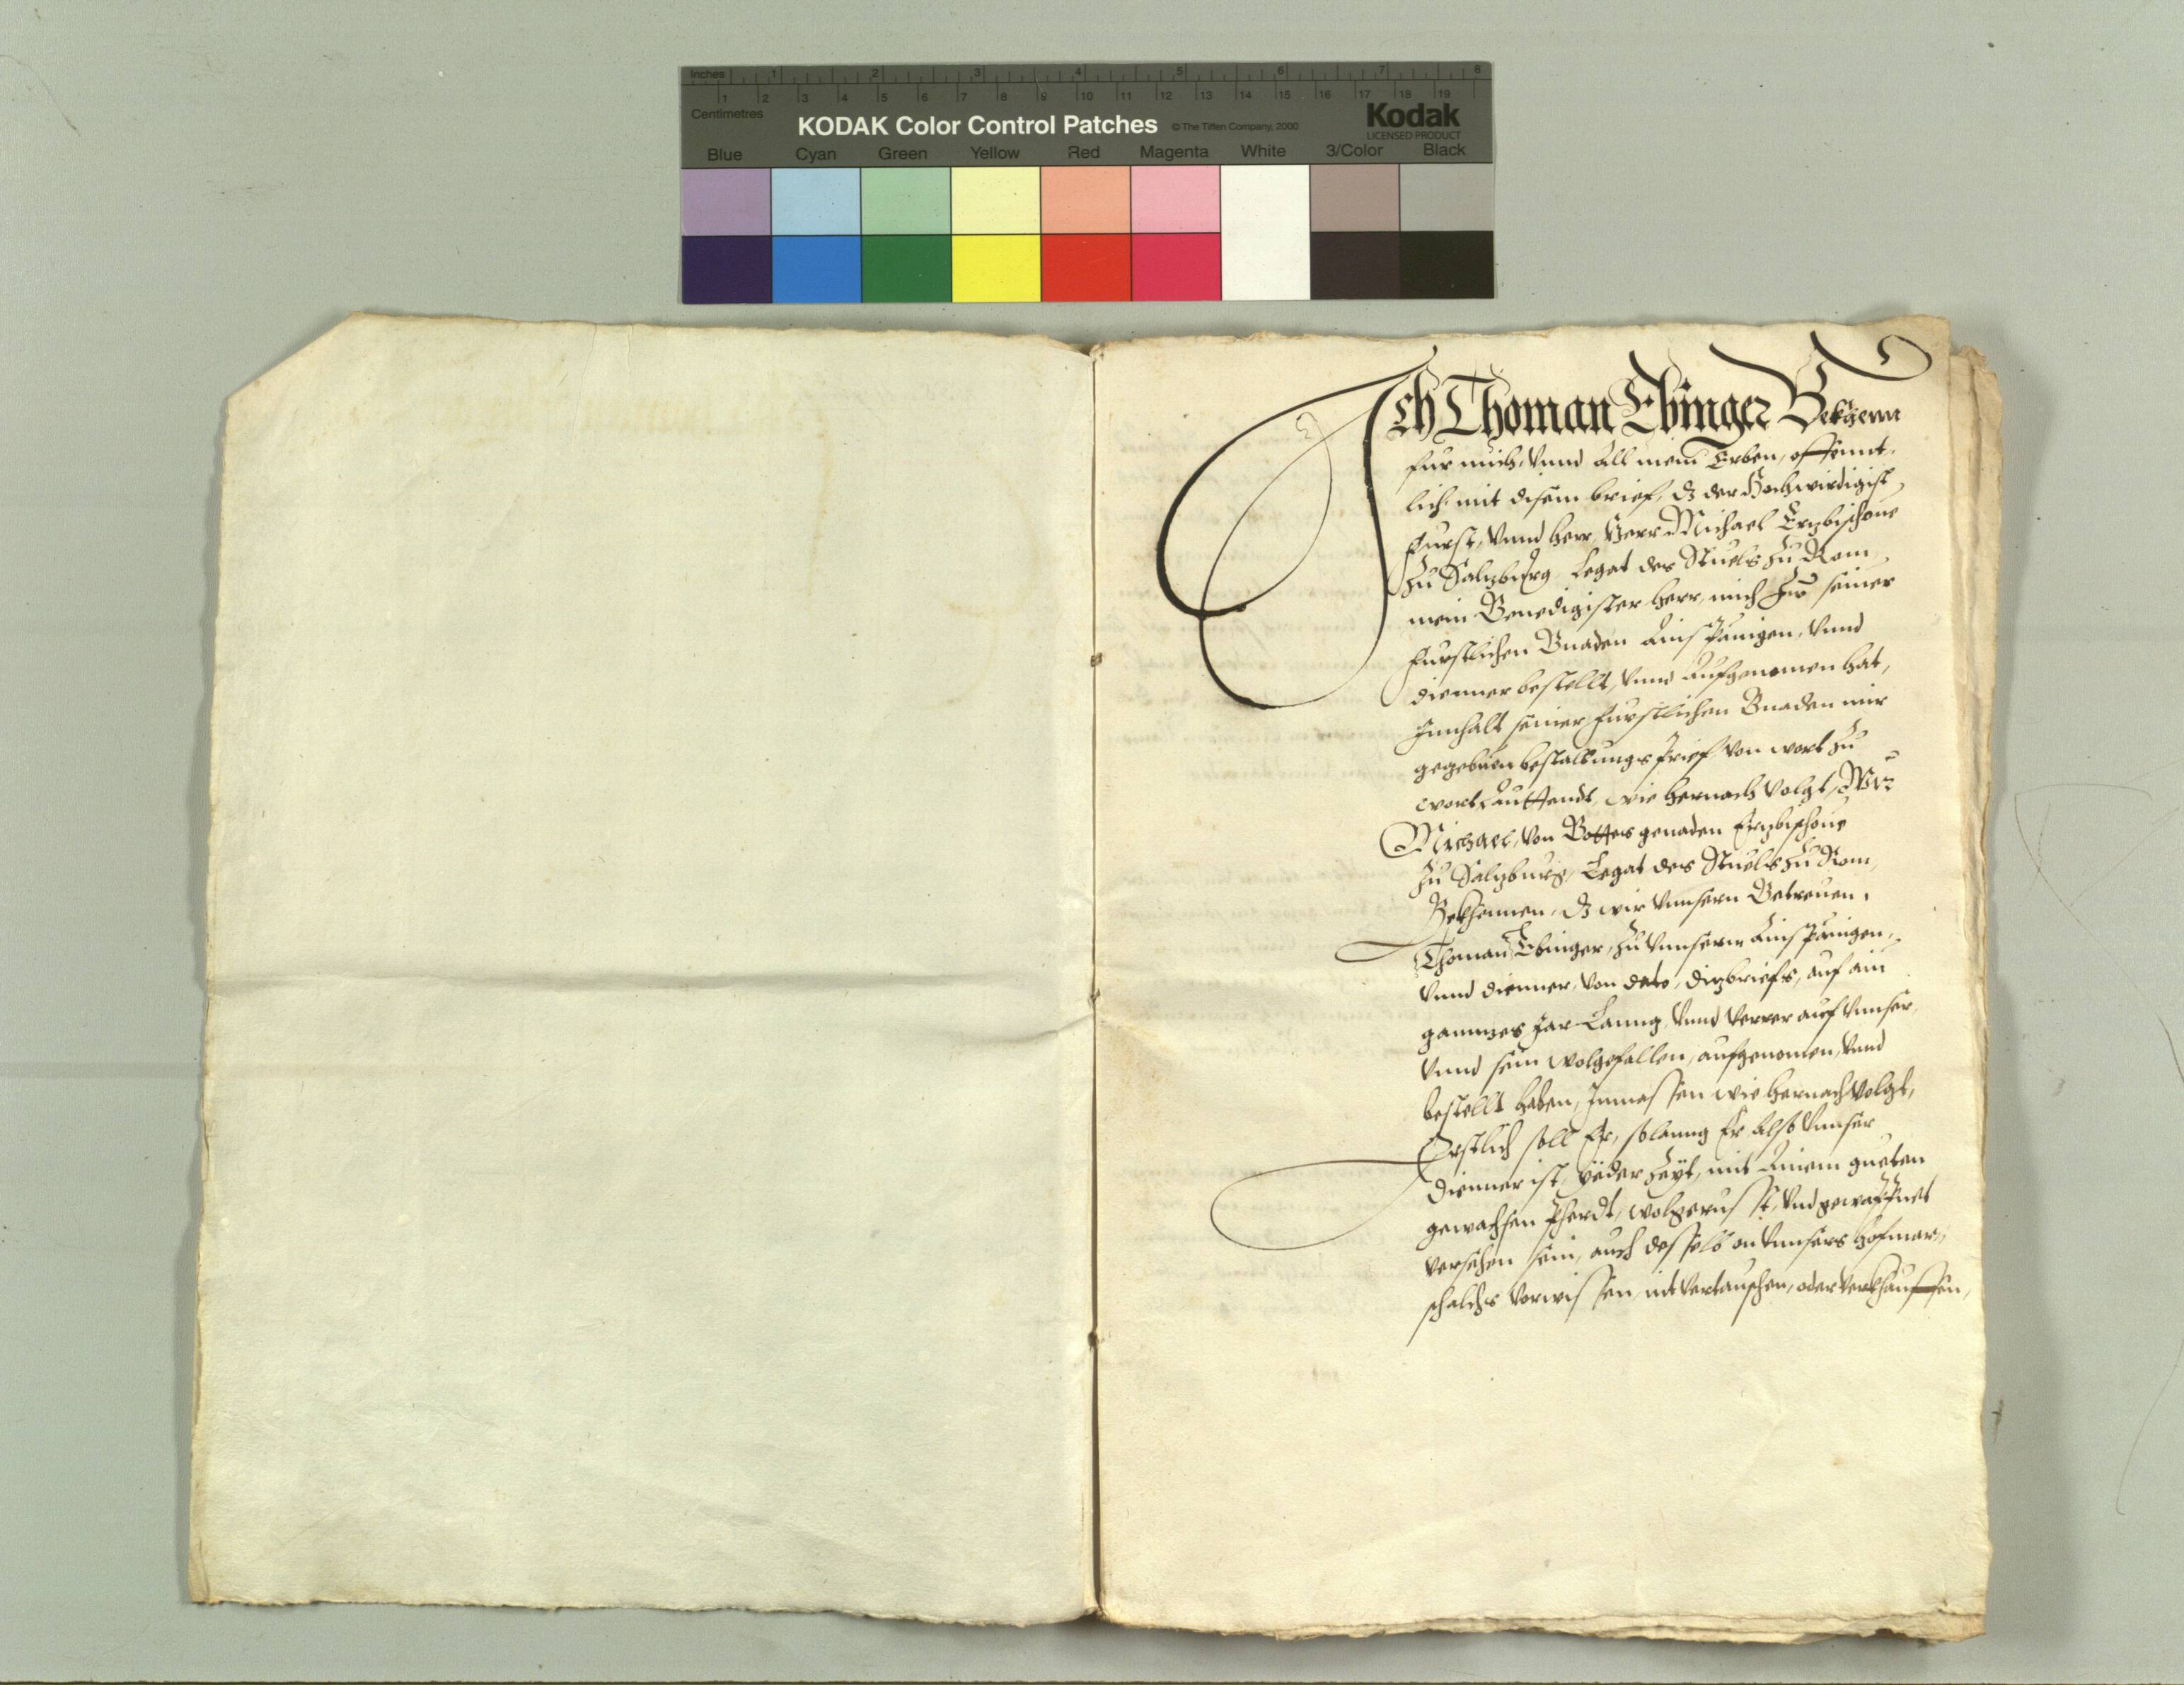 Inches 1 2 3 4 5 6 7 8
Centimetres 1 2 3 4 5 6 7 8 9 10 11 12 13 14 15 16 17 18 19
KODAK Color Control Patches © The Tiffen Company, 2000 Kodak
LICENSED PRODUCT
Blue Cyan Green Yellow Red Magenta White 3/Color Black
Ich Thoman Ebinger Bekhenn
fur mich, vnnd all mein Erben, offennt-
lich mit disem brief, dz der Hochwirdigist
Furst, vnnd herr, Herr Michael Ertzbischoue
zu Saltzburg, Legat des Stuels zu Rom,
mein Genedigister herr, mich zu seiner
Furstlichen Gnaden Ainspänigen, vnnd
dienner bestellt, vnnd aufgenomen hat,
Innhalt seiner Furstlichen Gnaden mir
gegebnen bestallungs brief von wort zu
wort lauttendt, wie hernach volgt, Wir
Michael, von Gottes genaden Ertzbischoue
zu Saltzburg, Legat des Stuels zu Rom,
Bekhennen, dz wir vnnsern Getreuen,
Thoman Ebinger, zu vnnserm Ainspänigen,
vnnd dienner, von dato, ditzbriefs, auf ain
ganntzes Jar Lanng, vnnd verrer auf vnnser,
vnnd sein wolgefallen, aufgenomen, vnnd
bestellt haben, Inmassen wie hernach volgt,
Erstlich soll Er, solanng Er also vnnser
dienner ist, yeder Zeyt, mit ainem gueten
gewachsen Pherdt, wolgerusst, vnd gewaffnet
versehen sein, auch desselb on vnnsers hofmar-
schalchs vorwissen, nit vertauschen, oder verkhauffen,